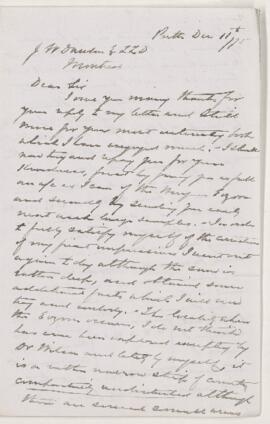 Perth Dec 11th /75
J W Dawson Esq LLD
Montreal
Dear Sir
I owe you many thanks for
your reply to my letter and still
more for your most interesting book
which I have enjoyed much. I think
now to try and repay you for your
Kindness, first by giving you as full
an a/c as I can of the Eozoon
and secondly by sending you some
large samples. In order
to fully satisfy myself of the correctness
of my first impressions I went out
again to day although the snow is
deep, and obtained some
additional facts which I will now
try and embody. The locality where
the Eozoon occurs, I do not think
has ever been explored excepting by
Dr Wilson and lately by myself, it
is a rather narrow strip of country
comparatively undisturbed although
there are several small